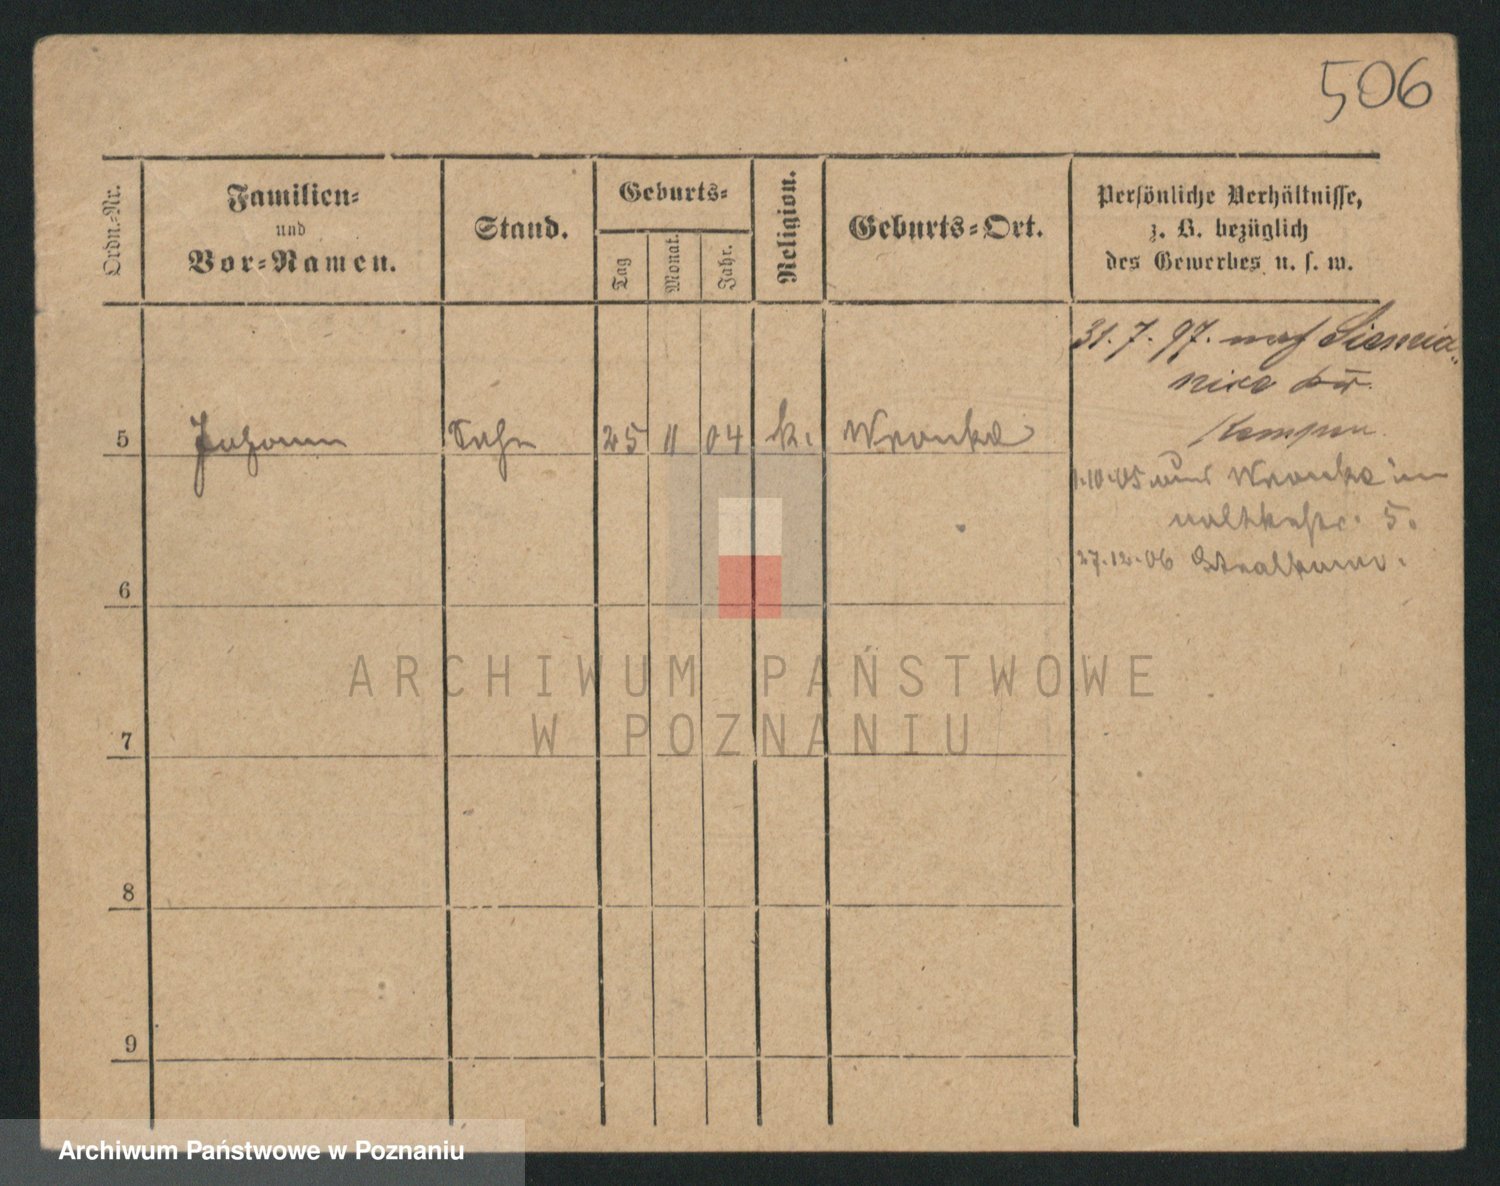 506
Ordn.-Nr.
Familien-
und
Vor-Namen.
Stand.
Geburts-
Tag
Monat.
Jahr.
Religion.
Geburts-Ort.
Persönliche Verhältnisse,
z. B. bezüglich
des Gewerbes u. s. w.
31. 7. 97. nach Siemia-
nice bei
Kempen
5 Johann Sohn 25 11 04 k. Wronke
1.10.05 aus Wronke in
5.
27.12.06 Stralkowo.
6
7
8
9
ARCHIWUM PAŃSTWOWE
W POZNANIU
Archiwum Państwowe w Poznaniu